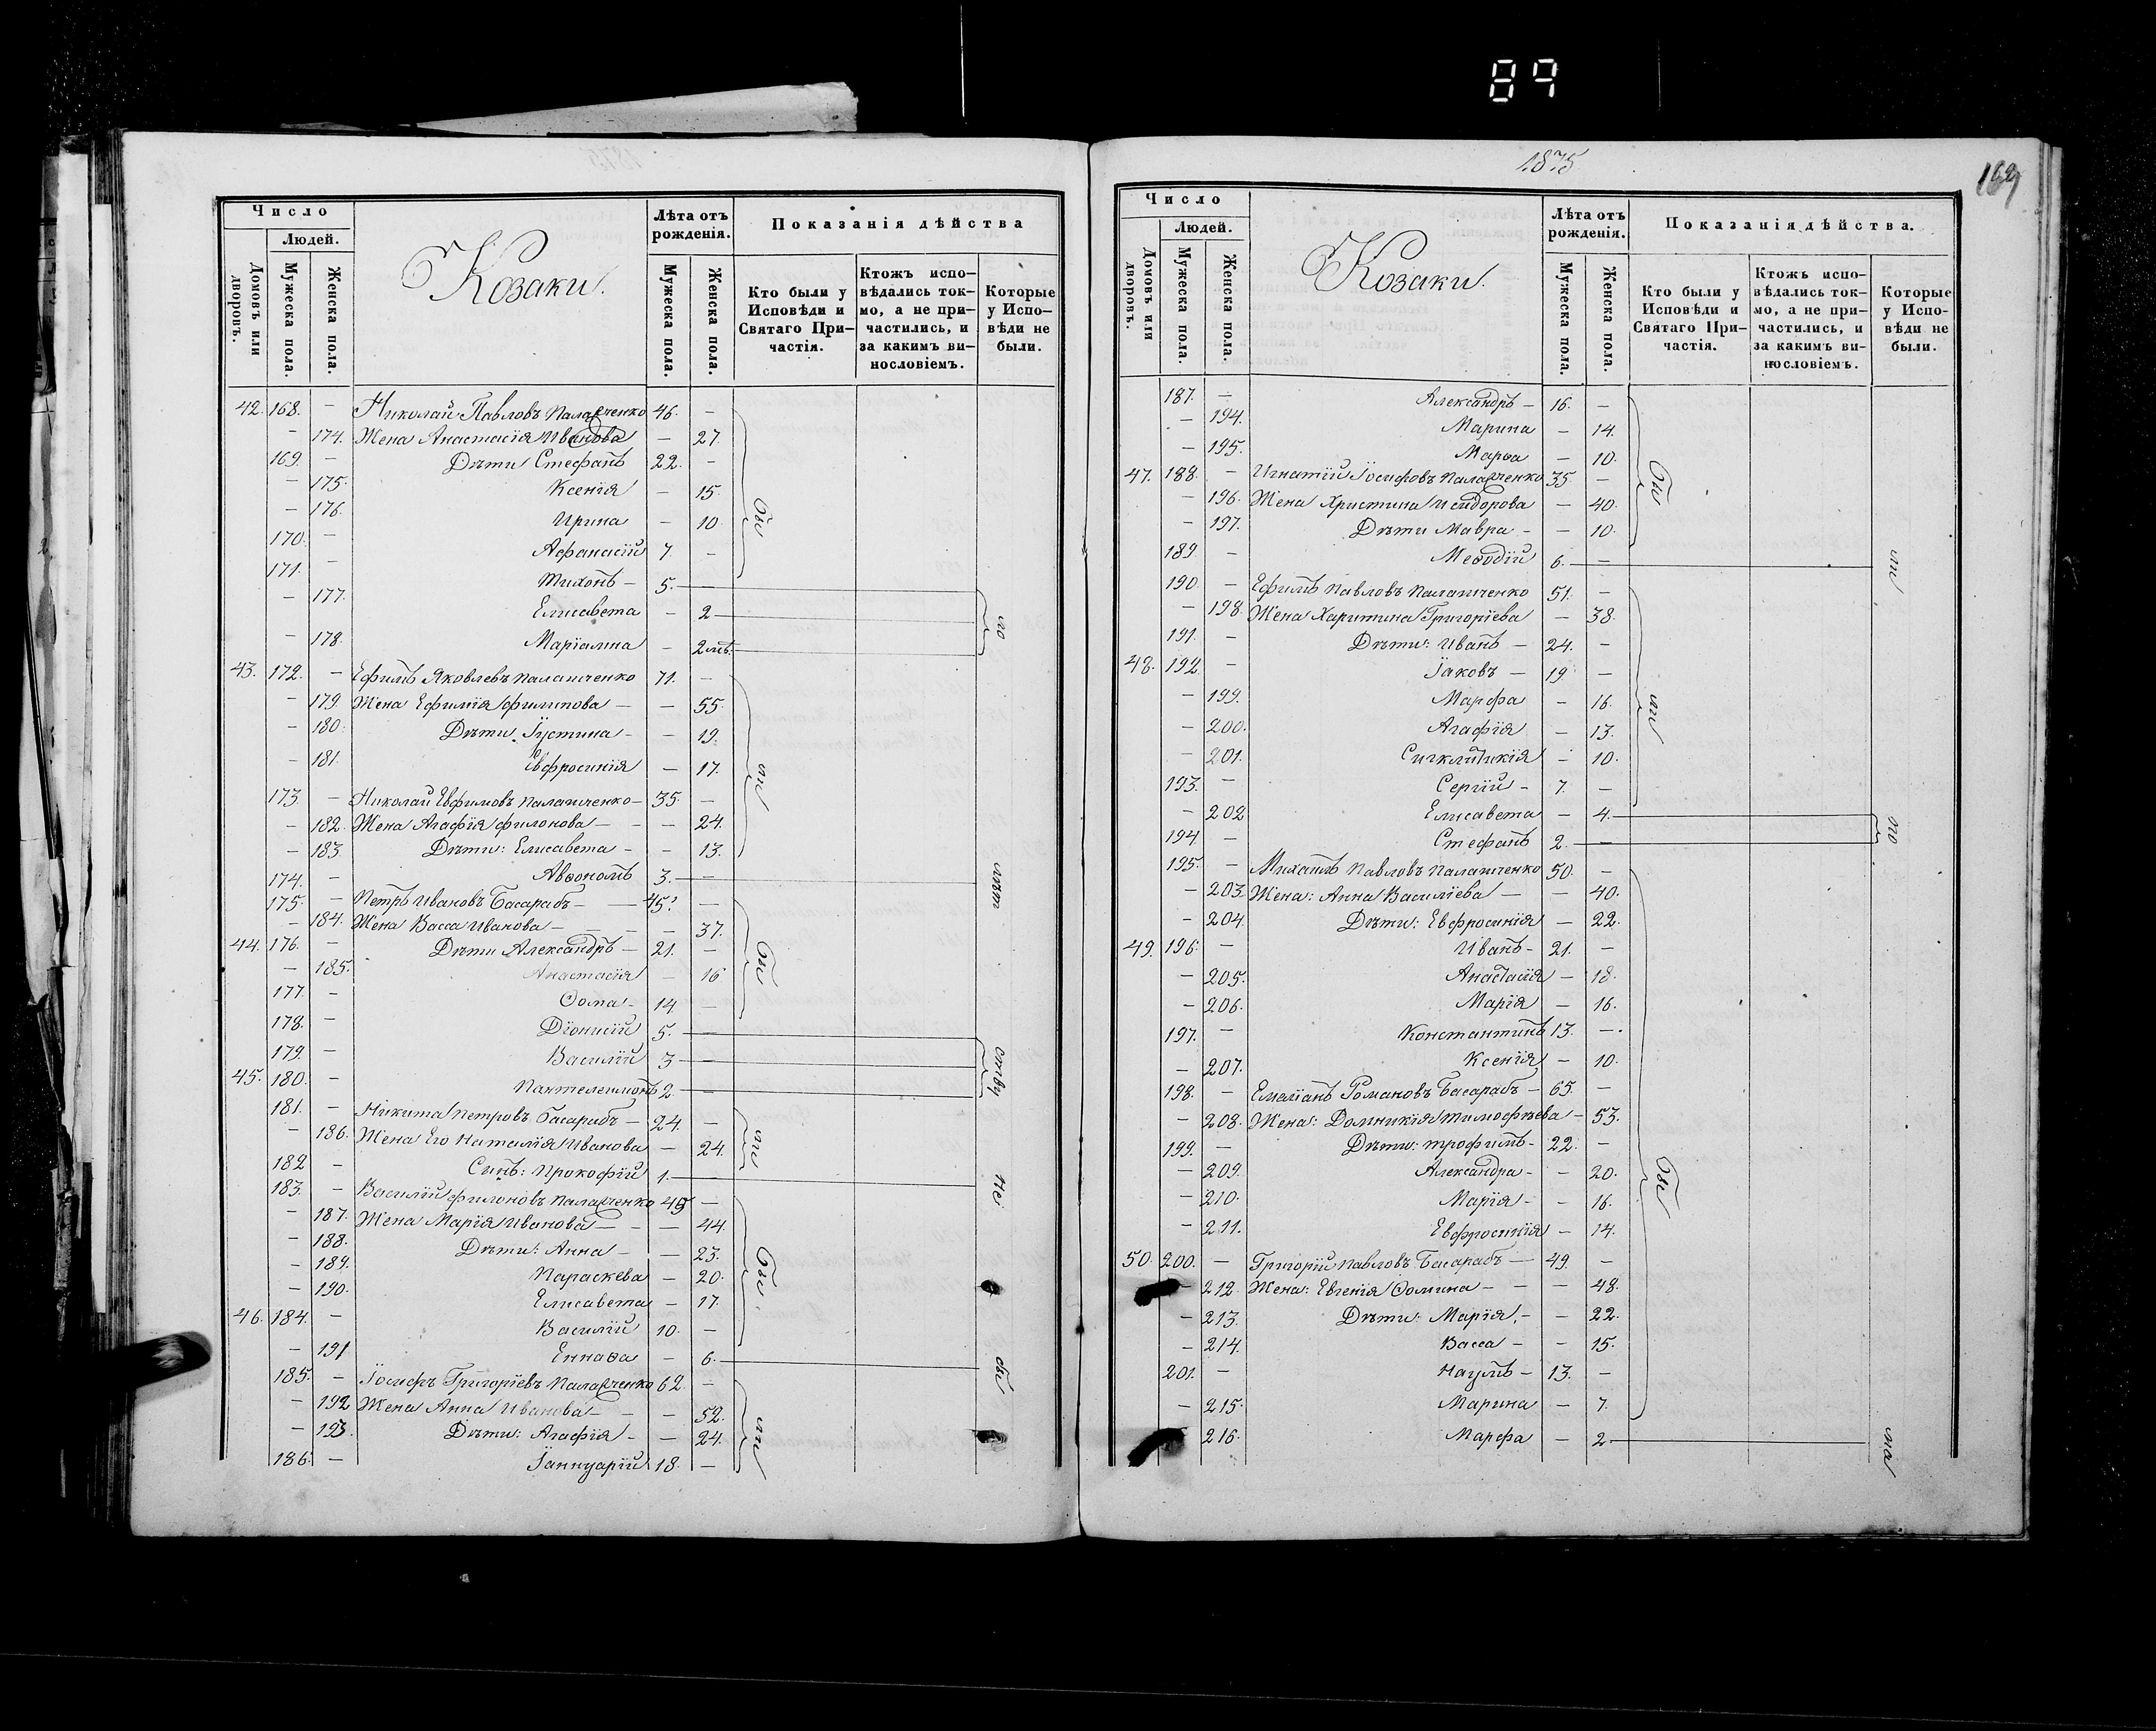 89
1875
169
Число
Людей.
Домовъ или дворовъ.
Мужеска пола.
Женска пола.
Козаки.
Лѣта отъ рожденія.
Мужеска пола.
Женска пола.
Показанія дѣйства
Кто были у Исповѣди и Святаго Причастія.
Ктожъ исповѣдались токмо, а не причастились, и за какимъ винословіемъ.
Которые у Исповѣди не были.
42. 168. — Николай Павловъ Палащенко 46. —
— 174. Жена Анастасія Иванова — 27.
169. — Дѣти Стефанъ 22. —
— 175. Ксенія — 15.
— 176. Ирина — 10.
170. — Афанасій 7. —
171. — Тихонъ — 5. —
— 177. Елисавета — 2 —
— 178. Маріамна — 2 мѣ.
43. 172. — Ефимъ Яковлевъ Палащенко 71. —
— 179. Жена Ефимія Филипова — — 55.
— 180. Дѣти Іустина — — 19.
— 181. Евфросинія — 17.
173. — Николай Евфимовъ Палащенко — 35. —
— 182. Жена Агафія Филонова — — — 24.
— 183. Дѣти: Елисавета — — 13.
174. — Авѳономъ 3. —
175. — Петръ Ивановъ Басарабъ — 45. —
— 184. Жена Васса Иванова — — — 37.
44. 176. — Дѣти Александръ — 21. —
— 185. Анастасія — 16
177. — Ѳома — 14 —
178. — Діонисій 5. —
179. — Василій 3 —
45. 180. — Пантелеимонъ 2. —
181. — Никита Петровъ Басарабъ — 24. —
— 186. Жена Его Наталія Иванова — 24.
182 — Сынъ: Прокофій 1. —
183. — Василій Филоновъ Палащенко 49 —
— 187. Жена Марія Иванова — — — 44.
— 188. Дѣти: Анна — — 23.
— 189. Параскева — 20.
— 190. Елисавета — 17.
46. 184. — Василій 10. —
— 191 Еннаѳа — 6.
185. — Іосифъ Григоріевъ Палащенко 62. —
— 192 Жена Анна Иванова — — — 52.
— 193. Дѣти: Агафія — — 24.
186. — Іаннуарій 18. —
Число
Людей.
Домовъ или дворовъ.
Мужеска пола.
Женска пола.
Козаки.
Лѣта отъ рожденія.
Мужеска пола.
Женска пола.
Показанія дѣйства.
Кто были у Исповѣди и Святаго Причастія.
Ктожъ исповѣдались токмо, а не причастились, и за какимъ винословіемъ.
Которые у Исповѣди не были.
187. — Александръ — 16. —
— 194. Марина — 14.
— 195. Марѳа — 10.
47. 188. — Игнатій Іосифовъ Палащенко 35 —
— 196. Жена Христина Исидорова — 40.
— 197. Дѣти Мавра — — 10.
189. — Меѳодій 6. —
190. — Ефимъ Павловъ Палащенко 51. —
— 198. Жена Харитина Григоріева — 38.
191. — Дѣти: Иванъ — 24. —
48. 192. — Іаковъ — 19 —
— 199. Марфа — 16.
— 200. Агафія — 13.
— 201. Сигклитикія — 10.
193. — Сергій — 7. —
— 202 Елисавета — 4.
194. — Стефанъ 2. —
195. — Михаилъ Павловъ Палащенко 50. —
— 203. Жена: Анна Василіева — — 40.
— 204. Дѣти: Евфросинія — 22.
49. 196. — Иванъ — 21. —
— 205. Анастасія — 18.
— 206. Марія — 16.
197. — Константинъ 13. —
— 207. Ксенія — 10.
198. — Емеліанъ Романовъ Басарабъ — 65. —
— 208. Жена: Домникія Тимофѣева — 53.
199. — Дѣти: Трофимъ — 22. —
— 209. Александра — — 20.
— 210. Марія — — 16.
— 211. Евфросинія — 14.
50. 200. — Григорій Павловъ Басарабъ — 49. —
— 212. Жена: Евгенія Ѳомина — — — 48.
— 213. Дѣти: Марія — — 22.
— 214. Васса — — 15.
201. — Наумъ — 13. —
— 215. Марина — 7.
216. Марфа — 2.